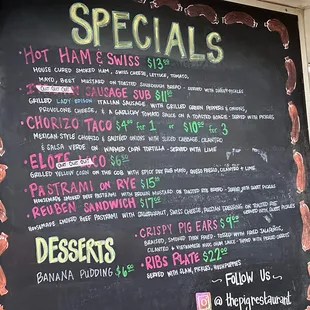 SPECIALS
• HOT HAM & SWISS $13.50
HOUSE CURED SMOKED HAM, SWISS CHEESE, LETTUCE, TOMATO,
MAYO, BEET MUSTARD ON TOASTED SOURDOUGH BREAD - SERVED WITH
SAUSAGE SUB $11.50
GRILLED LADY EDISON ITALIAN SAUSAGE WITH GRILLED GREEN PEPPERS & ONIONS,
PROVOLONE CHEESE & A GARLICKY TOMATO SAUCE ON A TOASTED HOAGIE - SERVED WITH PICKLES
• CHORIZO TACO $4.00 FOR 1 OR $10.50 FOR 3
MEXICAN STYLE CHORIZO & SAUTEED ONIONS WITH SLICED CABBAGE, CILANTRO
& SALSA VERDE ON WARMED CORN TORTILLA - SERVED WITH LIME
• ELOTE $6.50
GRILLED YELLOW CORN ON THE COB WITH SPICY MAYO, QUESO FRESCO, CILANTRO & LIME
• PASTRAMI ON RYE $15.00
HOMEMADE SMOKED BEEF PASTRAMI WITH MUSTARD ON TOASTED RYE BREAD - SERVED WITH HOUSE PICKLES
• REUBEN SANDWICH $17.00
HOMEMADE SMOKED BEEF PASTRAMI WITH SAUERKRAUT, SWISS CHEESE, RUSSIAN DRESSING ON TOASTED RYE
SERVED WITH HOUSE PICKLES
• CRISPY PIG EARS $9.50
BRAISED, SMOKED THEN FRIED - TOSSED WITH FRIED JALAPEÑOS,
CILANTRO & VIETNAMESE NUOC CHAM SAUCE - SERVED WITH PICKLES
• RIBS PLATE $22.00
SERVED WITH SLAW, PICKLES, HUSHPUPPIES
DESSERTS
BANANA PUDDING $6.50
- FOLLOW US -
@ thepigrestaurant